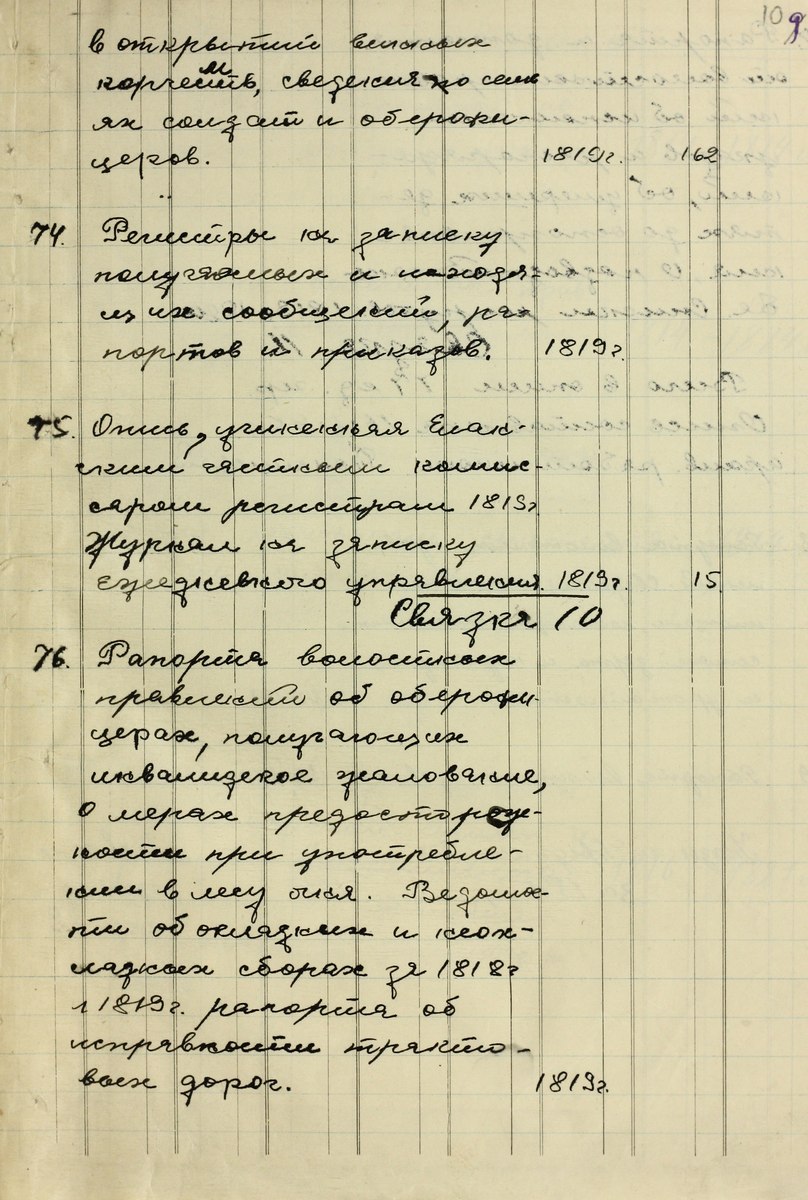 10 9
в открытий вольных
корчемтв, сведения по семь
ях солдат и оберофи-
церов. 1819г. 162
74. Регистры на записку
получаемых и исходя-
щих сообщений, ра
портов и приказов. 1819г.
75. Опись, учиненная
ским частным комис-
саром регистрам 1819г
Журнал на записку
ежедневного управления. 1819г. 15
Связка 10
76. Рапорта волостных
правлений об оберофи-
церах, получающих
инвалидное жалование,
о мерах предосторож-
ности при употребле-
нии в лесу огня. Ведомос-
ти об окладных и неок-
ладных сборах за 1818г
и 1819г. рапорта об
исправности тракто-
вых дорог. 1819г.